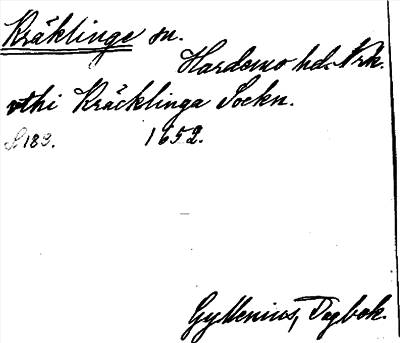 Kräklinge sn.
Hardemo hd. Nrk.
vthi Kräcklinga Sockn.
S 183. 1652.
Gyllenius, Dagbok.